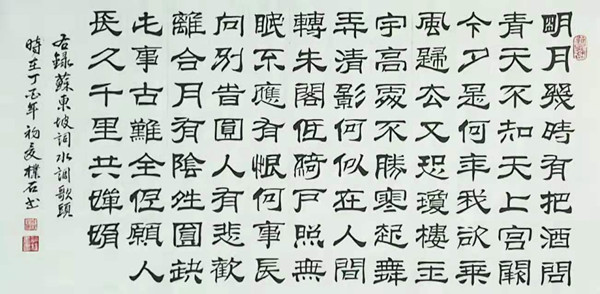 明月幾時有把酒問
青天不知天上宮闕
今夕是何年我欲乘
風歸去又恐瓊樓玉
宇高處不勝寒起舞
弄清影何似在人間
轉朱閣低綺戶照無
眠不應有恨何事長
向別旹圓人有悲歡
離合月有陰夝圓缺
此事古難全但願人
長久千里共嬋娟
右錄蘇東坡詞水調歌頭
時在丁酉年初夏樸石書